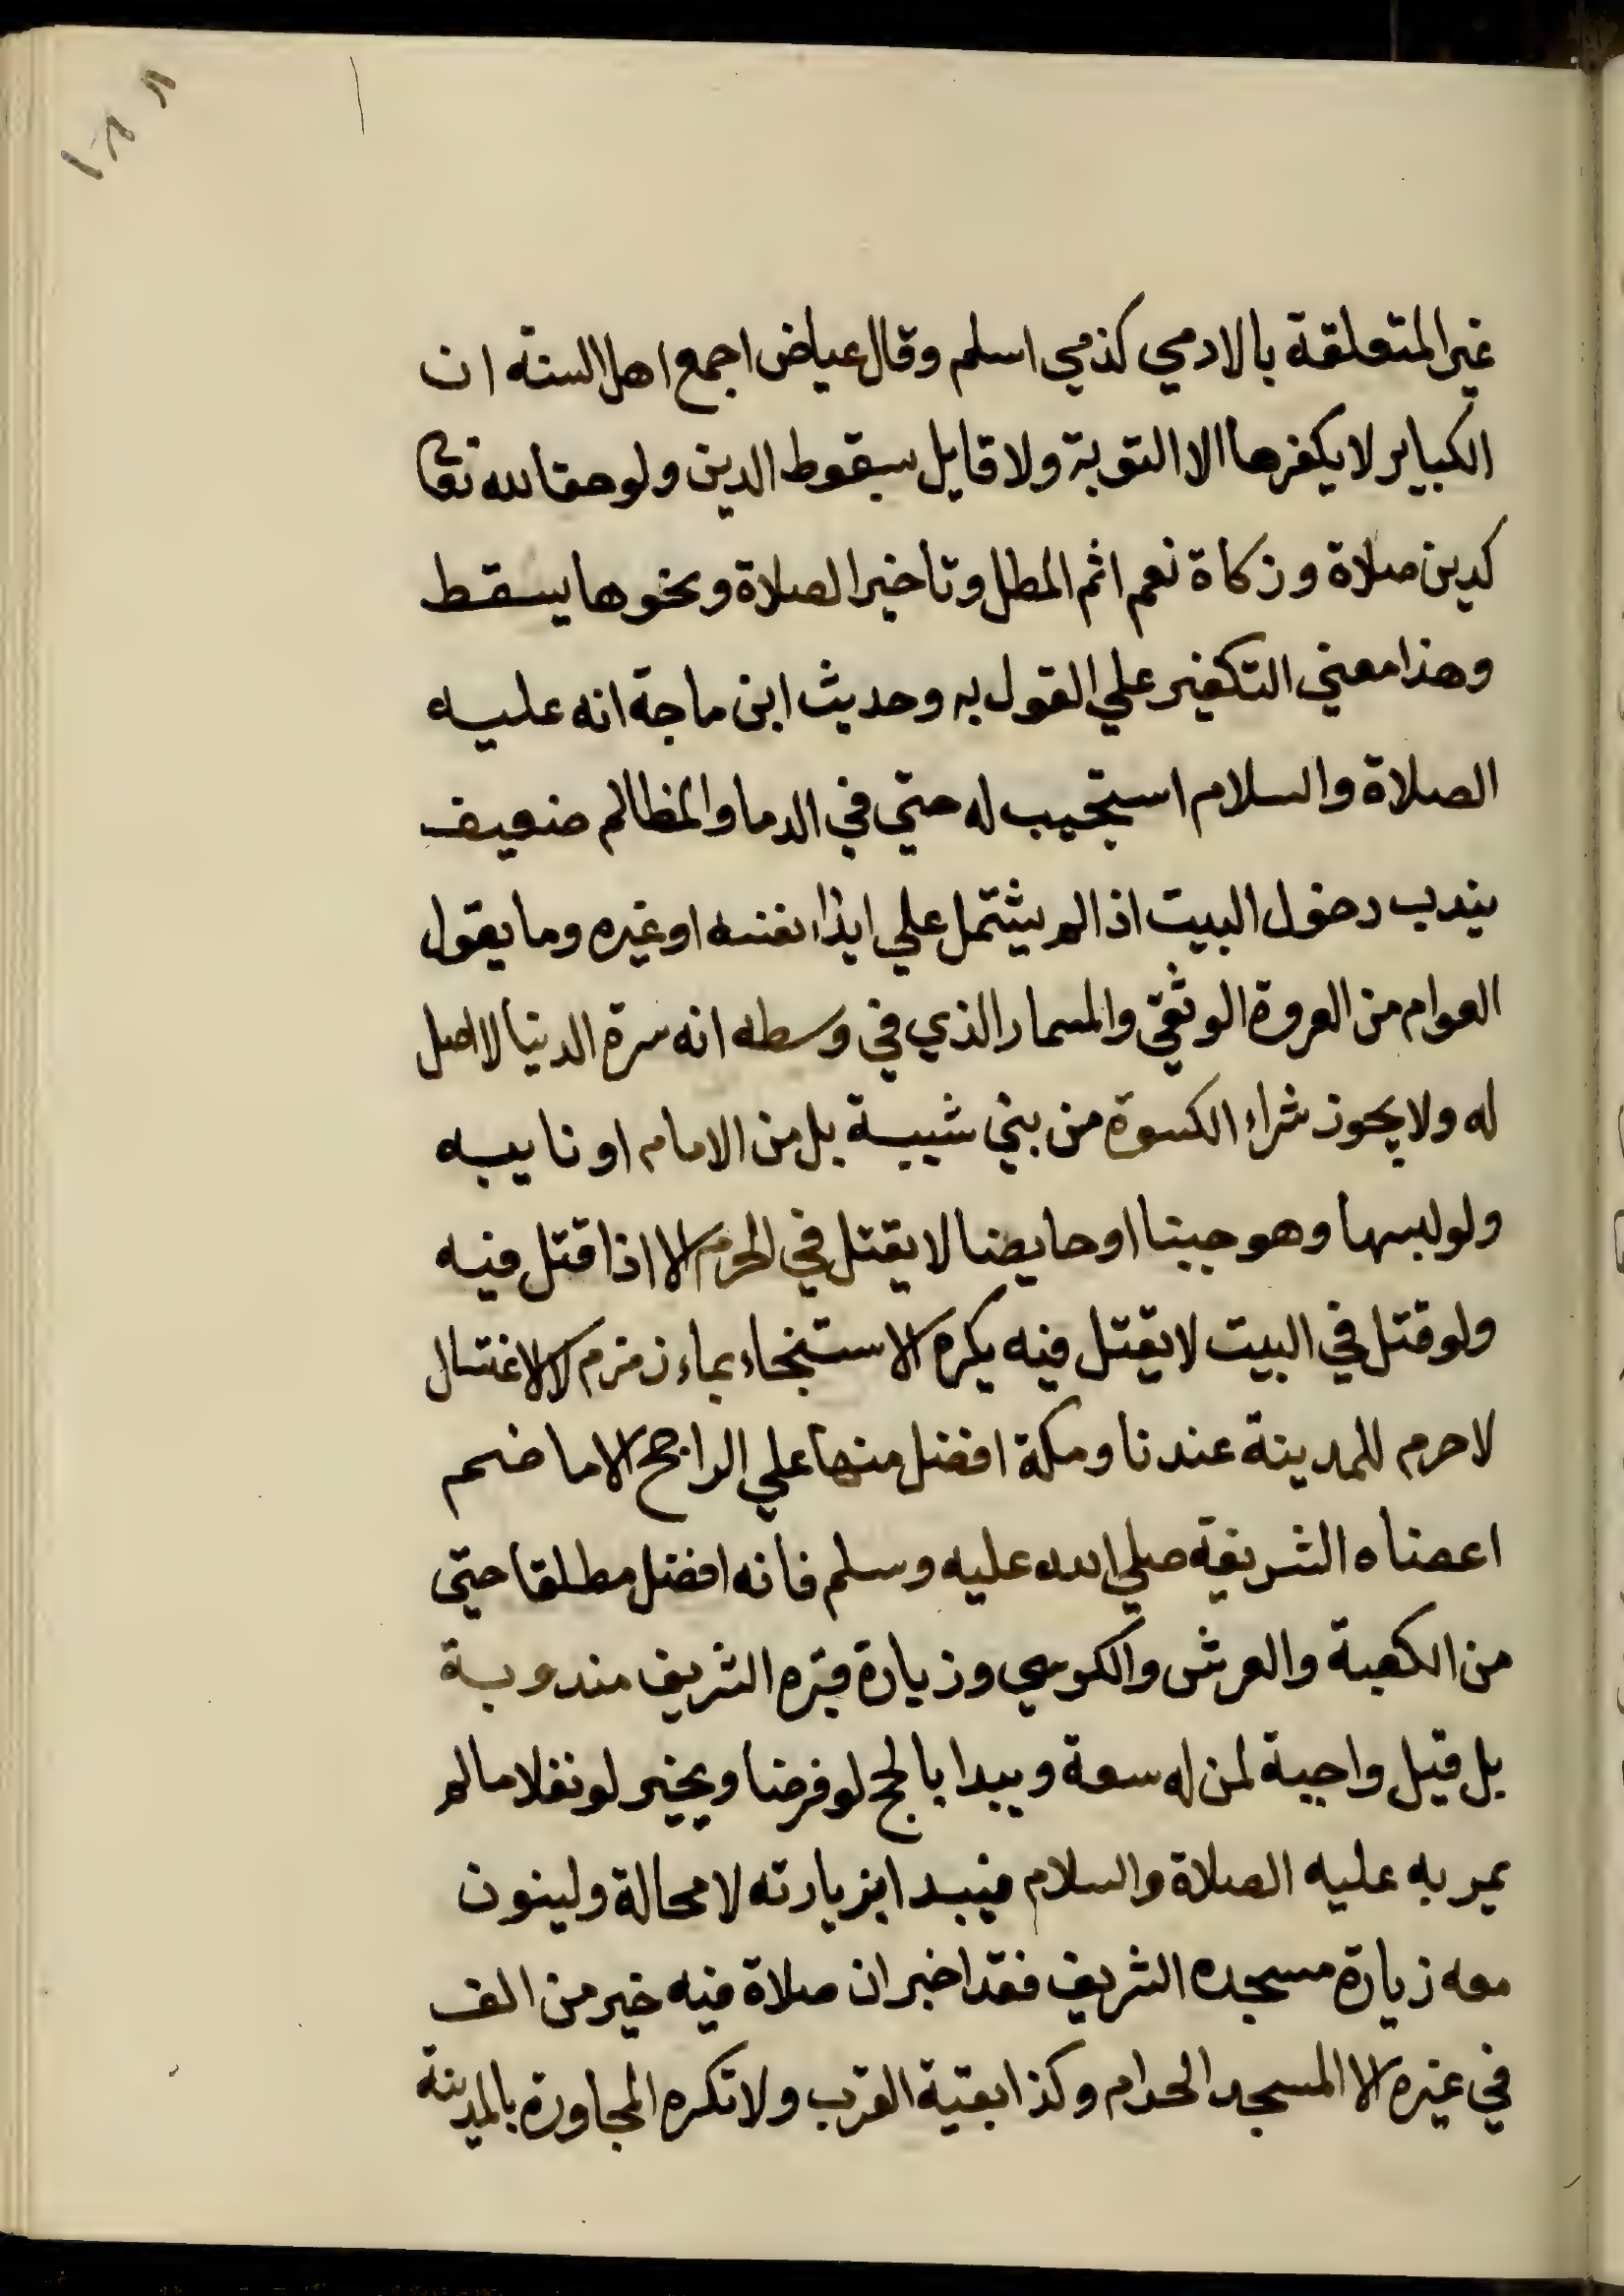 ١٨٨
غير المتعلقة بالادمي كذمي اسلم وقال عياض اجمع اهل السنة ان
الكباير لا يكفرها الا التوبة ولا قايل بسقوط الدين ولو حقا لله تعا
كدين صلاة وزكاة نعم اثم المطل وتاخير الصلاة ونحوها يسقط
وهذا معني التكفير علي القول به وحديث ابن ماجة انه عليه
الصلاة والسلام استجيب له حتي في الدما والمظالم ضعيف
يندب دخول البيت اذا لم يشتمل علي ايذا نفسه او غيره وما يقول
العوام من العروة الوثقي والمسمار الذي في وسطه انه سرة الدنيا لا اصل
له ولا يجوز شراء الكسوة من بني شيبة بل من الامام او نايبه
ولو لبسها وهو جبنا او حايضا لا يقتل في الحرم الا اذا قتل فيه
ولو قتل في البيت لا يقتل فيه يكره الاستنجاء بماء زمزم لا الاغتسال
لا حرم للمدينة عندنا ومكة افضل منها علي الراجح الا ما ضم
اعضاه الشريفة صلي الله عليه وسلم فانه افضل مطلقا حتي
من الكعبة والعرش والكرسي وزيارة قبره الشريف مندوبة
بل قيل واجبة لمن له سعة ويبدا بالحج لو فرضا ويخير لو نفلا ما لم
يمر به عليه الصلاة والسلام فيبدا بزيارته لا محالة ولينون
معه زيارة مسجده الشريف فقد اخبر ان صلاة فيه خير من الف
في غيره الا المسجد الحرام وكذا بقية القرب ولا تكره المجاورة بالمدينة